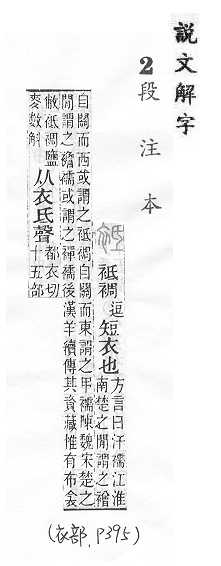 説文解字
2 段注本
袛裯逗短衣也方言曰汗襦江淮
南楚之閒謂之䙢
自關而西或謂之袛裯自關而東謂之甲襦陳魏宋楚之
閒謂之襜襦或謂之襌襦後漢羊續傳其資藏惟有布衾
敝袛裯鹽
麥數斛
从衣氐聲
都衣切
十五部
(衣部,P395)